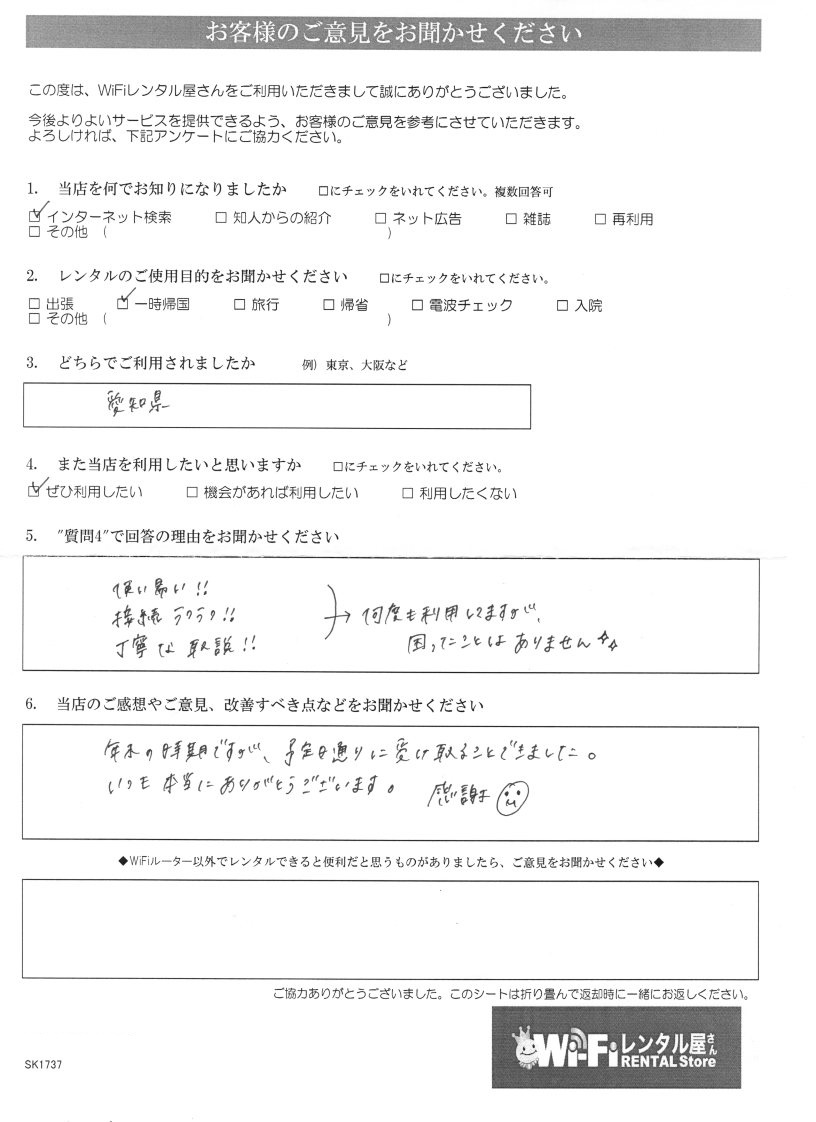 お客様のご意見をお聞かせください
この度は、WiFiレンタル屋さんをご利用いただきまして誠にありがとうございました。
今後よりよいサービスを提供できるよう、お客様のご意見を参考にさせていただきます。
よろしければ、下記アンケートにご協力ください。
1. 当店を何でお知りになりましたか □にチェックをいれてください。複数回答可
☑ インターネット検索 □ 知人からの紹介 □ ネット広告 □ 雑誌 □ 再利用
□ その他 ( )
2. レンタルのご使用目的をお聞かせください □にチェックをいれてください。
□ 出張 ☑ 一時帰国 □ 旅行 □ 帰省 □ 電波チェック □ 入院
□ その他 ( )
3. どちらでご利用されましたか 例) 東京、大阪など
愛知県
4. また当店を利用したいと思いますか □にチェックをいれてください。
☑ ぜひ利用したい □ 機会があれば利用したい □ 利用したくない
5. "質問4"で回答の理由をお聞かせください
使い易い!!
接続ラクラク!!
丁寧な取説!!
→ 何度も利用してますが、
困ったことはありません
6. 当店のご感想やご意見、改善すべき点などをお聞かせください
年末の時期ですが、予定日通りに受け取ることできました。
いつも本当にありがとうございます。 感謝
◆WiFiルーター以外でレンタルできると便利だと思うものがありましたら、ご意見をお聞かせください◆
ご協力ありがとうございました。このシートは折り畳んで返却時に一緒にお返しください。
Wi-Fiレンタル屋さん
RENTAL Store
SK1737